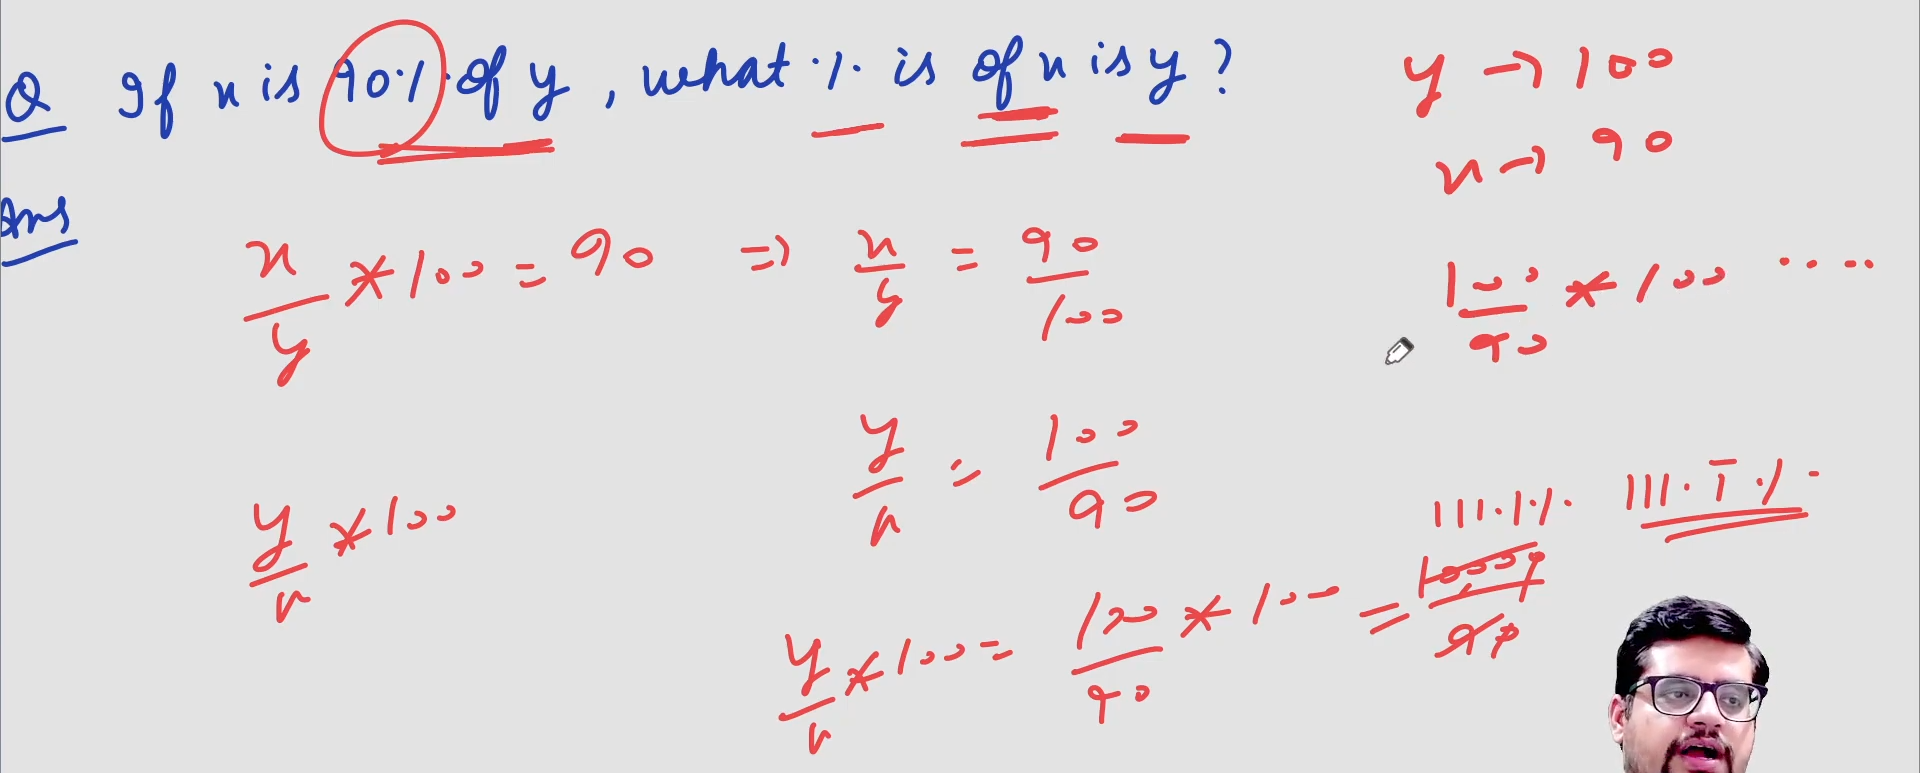 Q If x is 90% of y, what % is of x is y?
Ans
x/y * 100 = 90 => x/y = 90/100
y/x = 100/90
y/x * 100
y/x * 100 = 100/90 * 100 = 10,000/90
111.1%.
111.1̅%.
y → 100
x → 90
100/90 * 100 ....